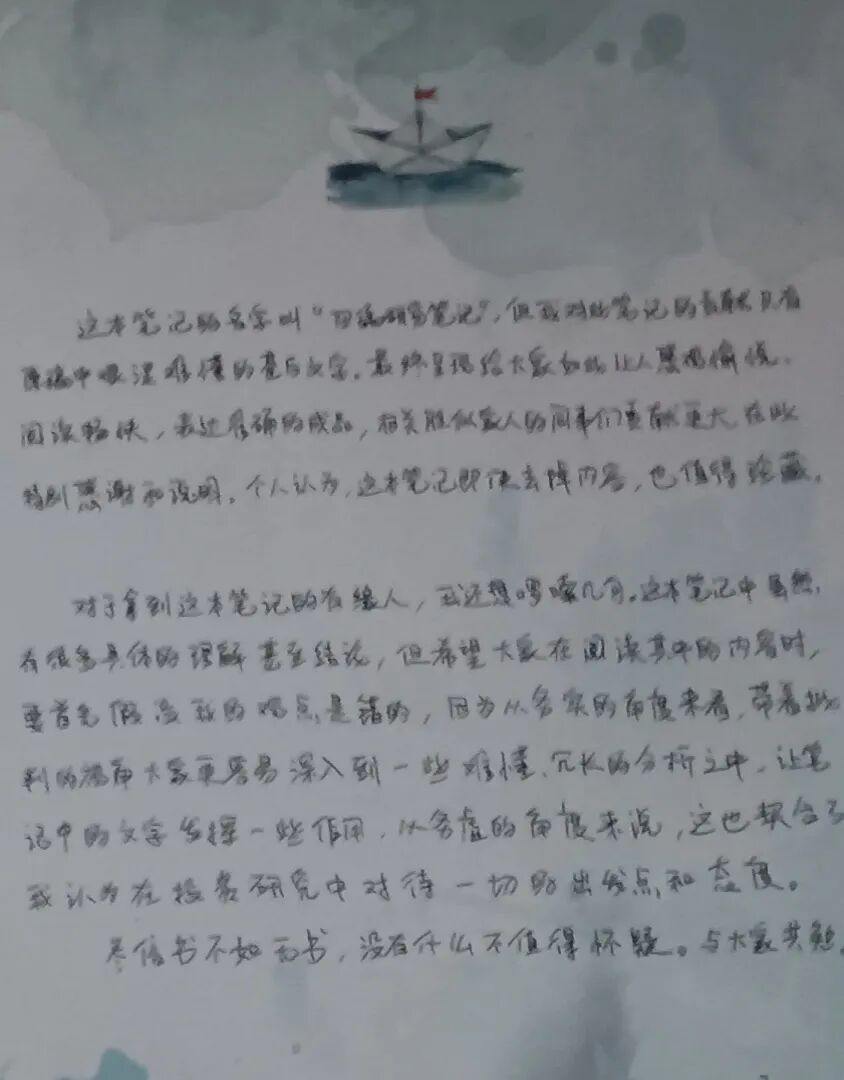 这本笔记的名字叫“研究笔记”，但我对此笔记的贡献只有
原稿中晦涩难懂的基与文字。最终呈现给大家如此让人愉悦、
阅读畅快，表达准确的成品，相关胜似家人的同事们贡献更大，在此
特别感谢和说明。个人认为，这本笔记即使去掉内容，也值得珍藏。
对于拿到这本笔记的有缘人，我还想啰嗦几句。这本笔记中虽然
有很多具体的理解甚至结论，但希望大家在阅读其中的内容时，
要首先假设我的观点是错的，因为从务实的角度来看，带着批
判的视角大家更容易深入到一些难懂、冗长的分析之中，让笔
记中的文字发挥一些作用，从务虚的角度来说，这也契合了
我认为在投资研究中对待一切的出发点和态度。
尽信书不如无书，没有什么不值得怀疑。与大家共勉